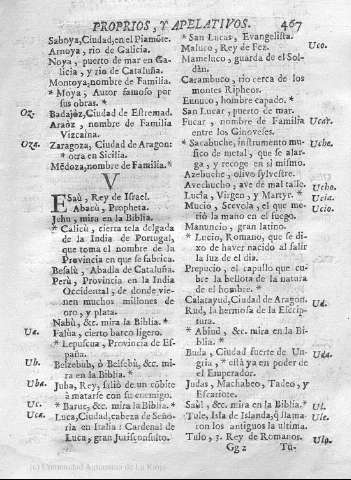 PROPRIOS, Y APELATIVOS. 467
Saboya, Ciudad, en el Piamõte.
Arnoya, rio de Galicia.
Noya, puerto de mar en Ga-
licia, y rio de Cataluña.
Montoya, nombre de Familia.
* Moya, Autor famoso por
sus obras. *
Oz. Badajòz, Ciudad de Estremad.
Araòz, nombre de Familia
Vizcaina.
Oza. Zaragoza, Ciudad de Aragon:
* otra en Sicilia.
Mẽdoza, nombre de Familia. *
V
ESaù, Rey de Israel.
Abacù, Propheta.
Jehu, mira en la Biblia.
* Calicù, cierta tela delgada
de la India de Portugal,
que toma el nombre de la
Provincia en que se fabrica.
Besalù, Abadia de Cataluña.
Perù, Provincia en la India
Occidental, de donde vie-
nen muchos millones de
oro, y plata.
Nabù, &c. mira la Biblia. *
Ua. Falùa, cierto barco ligero.
* Lepuscua, Provincia de Es-
paña.
Ub. Belzebub, ò Belsebù, &c. mi-
ra en la Biblia. *
Uba. Juba, Rey, saliò de un cõbite
à matarse con su enemigo.
Uc. * Baruc, &c. mira la Biblia. *
Uca. Luca, Ciudad, cabeza de Seño-
ria en Italia: Cardenal de
Luca, gran Jurisconsulto.
* San Lucas, Evangelista.
Uco. Maluco, Rey de Fez.
Mameluco, guarda de el Sol-
dàn.
Carambuco, rio cerca de los
montes Ripheos.
Eunuco, hombre capado. *
San Lucar, puerto de mar.
Ucar. Fucar, nombre de Familia
entre los Ginoveses.
Uche. * Sacabuche, instrumento mu-
sico de metal, que se alar-
ga, y recoge en si mismo.
Azebuche, olivo sylvestre.
Ucho. Avechucho, ave de mal talle.
Ucia. Lucia, Virgen, y Martyr. *
Ucio. Mucio, Scevola, el que me-
tiò la mano en el fuego.
Manuncio, gran latino.
* Lucio, Romano, que se di-
xo de haver nacido al salir
la luz de el dia.
Prepucio, el capullo que cu-
bre la bellota de la natura
de el hombre. *
Ud. Calatayud, Ciudad de Aragon.
Rud, la hermosa de la Escrip-
tura.
* Abiud, &c. mira en la Bi-
blia. *
Uda. Buda, Ciudad fuerte de Un-
gria, * està ya en poder de
el Emperador.
Judas, Machabeo, Tadeo, y
Escariote.
Ul. Saùl, &c. mira en la Biblia. *
Ule. Tule, Isla de Islanda, q̃ llama-
ron los antiguos la ultima.
Ulo. Tulo, 3. Rey de Romanos.
Gg 2 Tù-
(c) Comunidad Autonoma de La Rioja